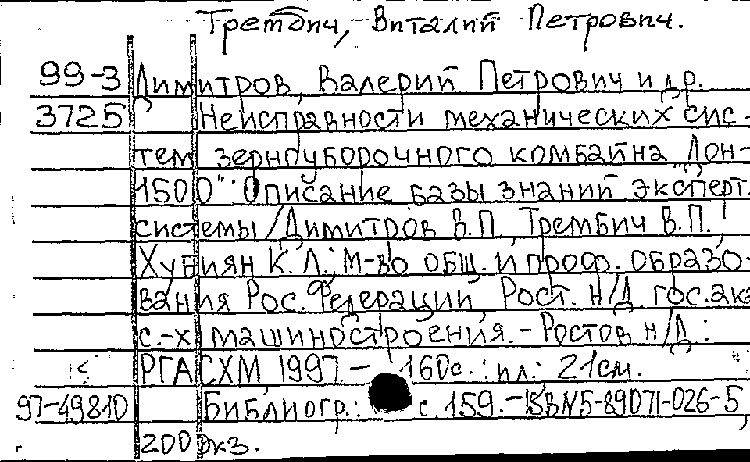 Трембич, Виталий Петрович.
99-3 Димитров, Валерий Петрович и др.
3725 Неисправности механических сис-
тем зерноуборочного комбайна „Дон-
1500": Описание базы знаний эксперт.
системы / Димитров В.П., Трембич В.П.,
Хубиян К.Л.; М-во общ. и проф. образо-
вания Рос. Федерации, Рост. н/Д гос. ака
с.-х машиностроения. - Ростов н/Д :
РГАСХМ, 1997 - 160с. : ил.; 21см.
97-49810 Библиогр.: с. 159. - ISBN5-89071-026-5,
200 экз.